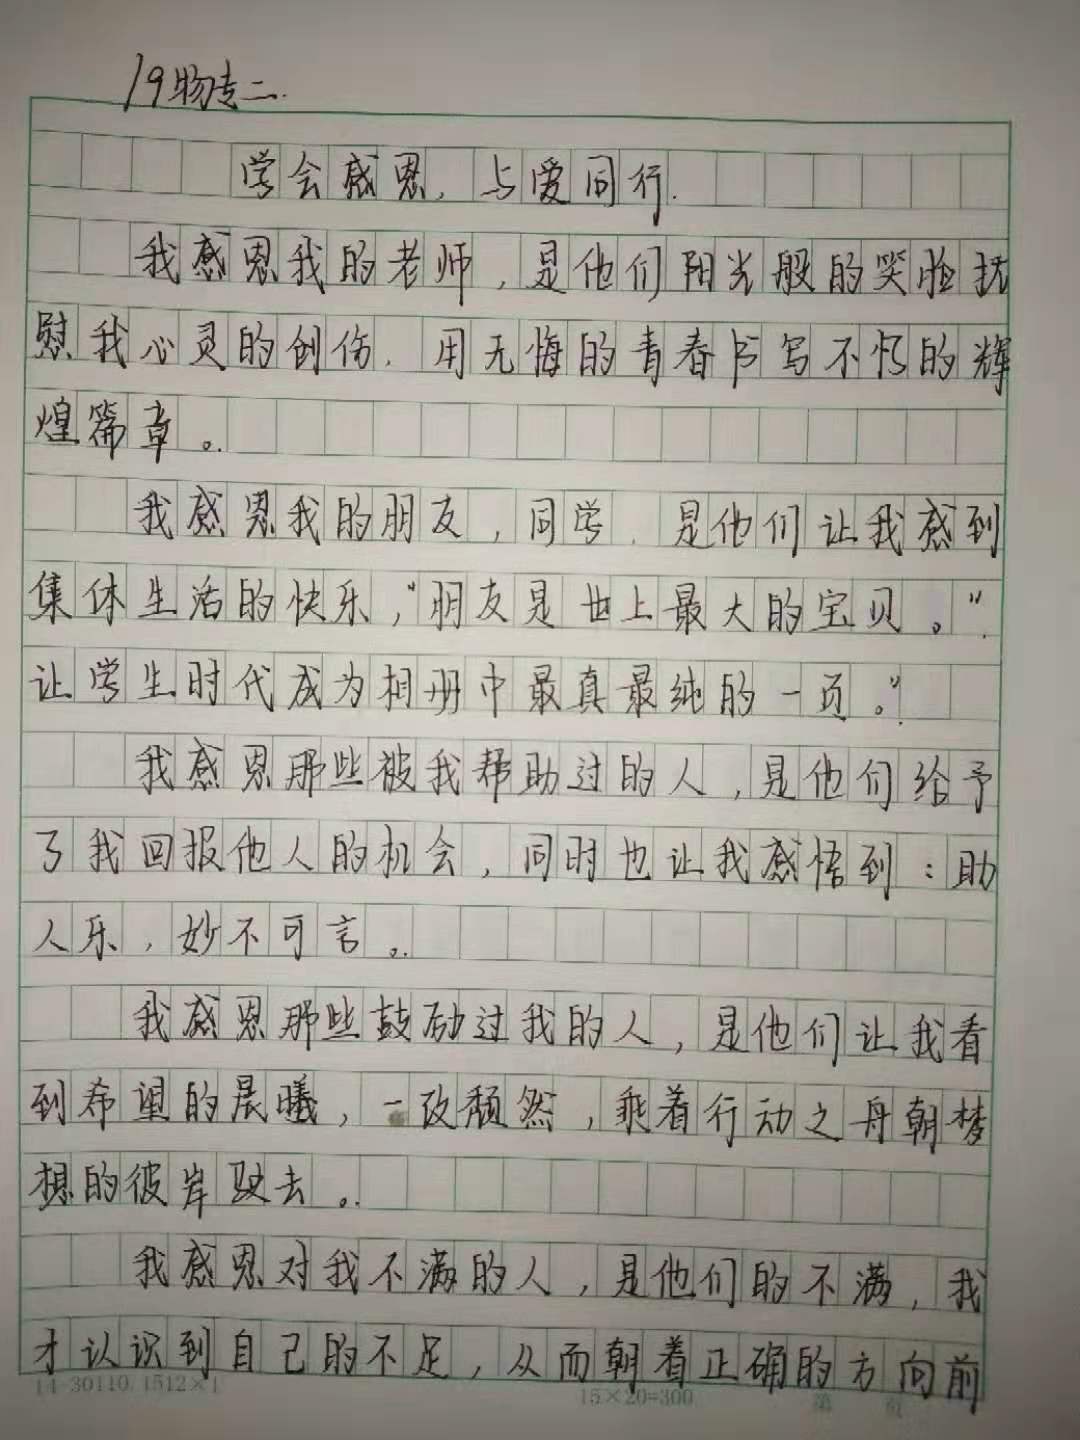 19物专二.
学会感恩,与爱同行.
我感恩我的老师,是他们阳光般的笑脸抚
慰我心灵的创伤.用无悔的青春书写不朽的辉
煌篇章。
我感恩我的朋友,同学.是他们让我感到
集体生活的快乐,"朋友是世上最大的宝贝。"
让学生时代成为相册中最真最纯的一页。"
我感恩那些被我帮助过的人,是他们给予
了我回报他人的机会,同时也让我感悟到:助
人乐,妙不可言。
我感恩那些鼓励过我的人,是他们让我看
到希望的晨曦,一改颓然,乘着行动之舟朝梦
想的彼岸驶去。
我感恩对我不满的人,是他们的不满,我
才认识到自己的不足,从而朝着正确的方向前
14-30110.1512×1 15×20=300 第 页